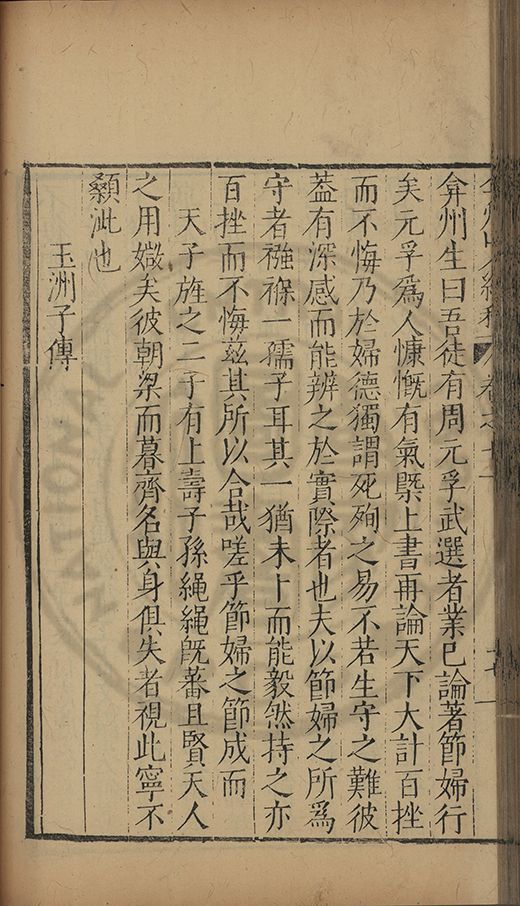 弇州生曰吾徒有周元孚武選者業已論著節婦行
矣元孚爲人慷慨有氣槩上書再論天下大計百挫
而不悔乃於婦德獨謂死殉之易不若生守之難彼
葢有深感而能辨之於實際者也夫以節婦之所爲
守者襁褓一孺子耳其一猶未卜而能毅然持之亦
百挫而不悔茲其所以合哉嗟乎節婦之節成而
天子旌之二子有上壽子孫繩繩旣蕃且賢天人
之用媺矣彼朝梁而暮齊名與身俱失者視此寧不
顙泚也
玉洲子傳